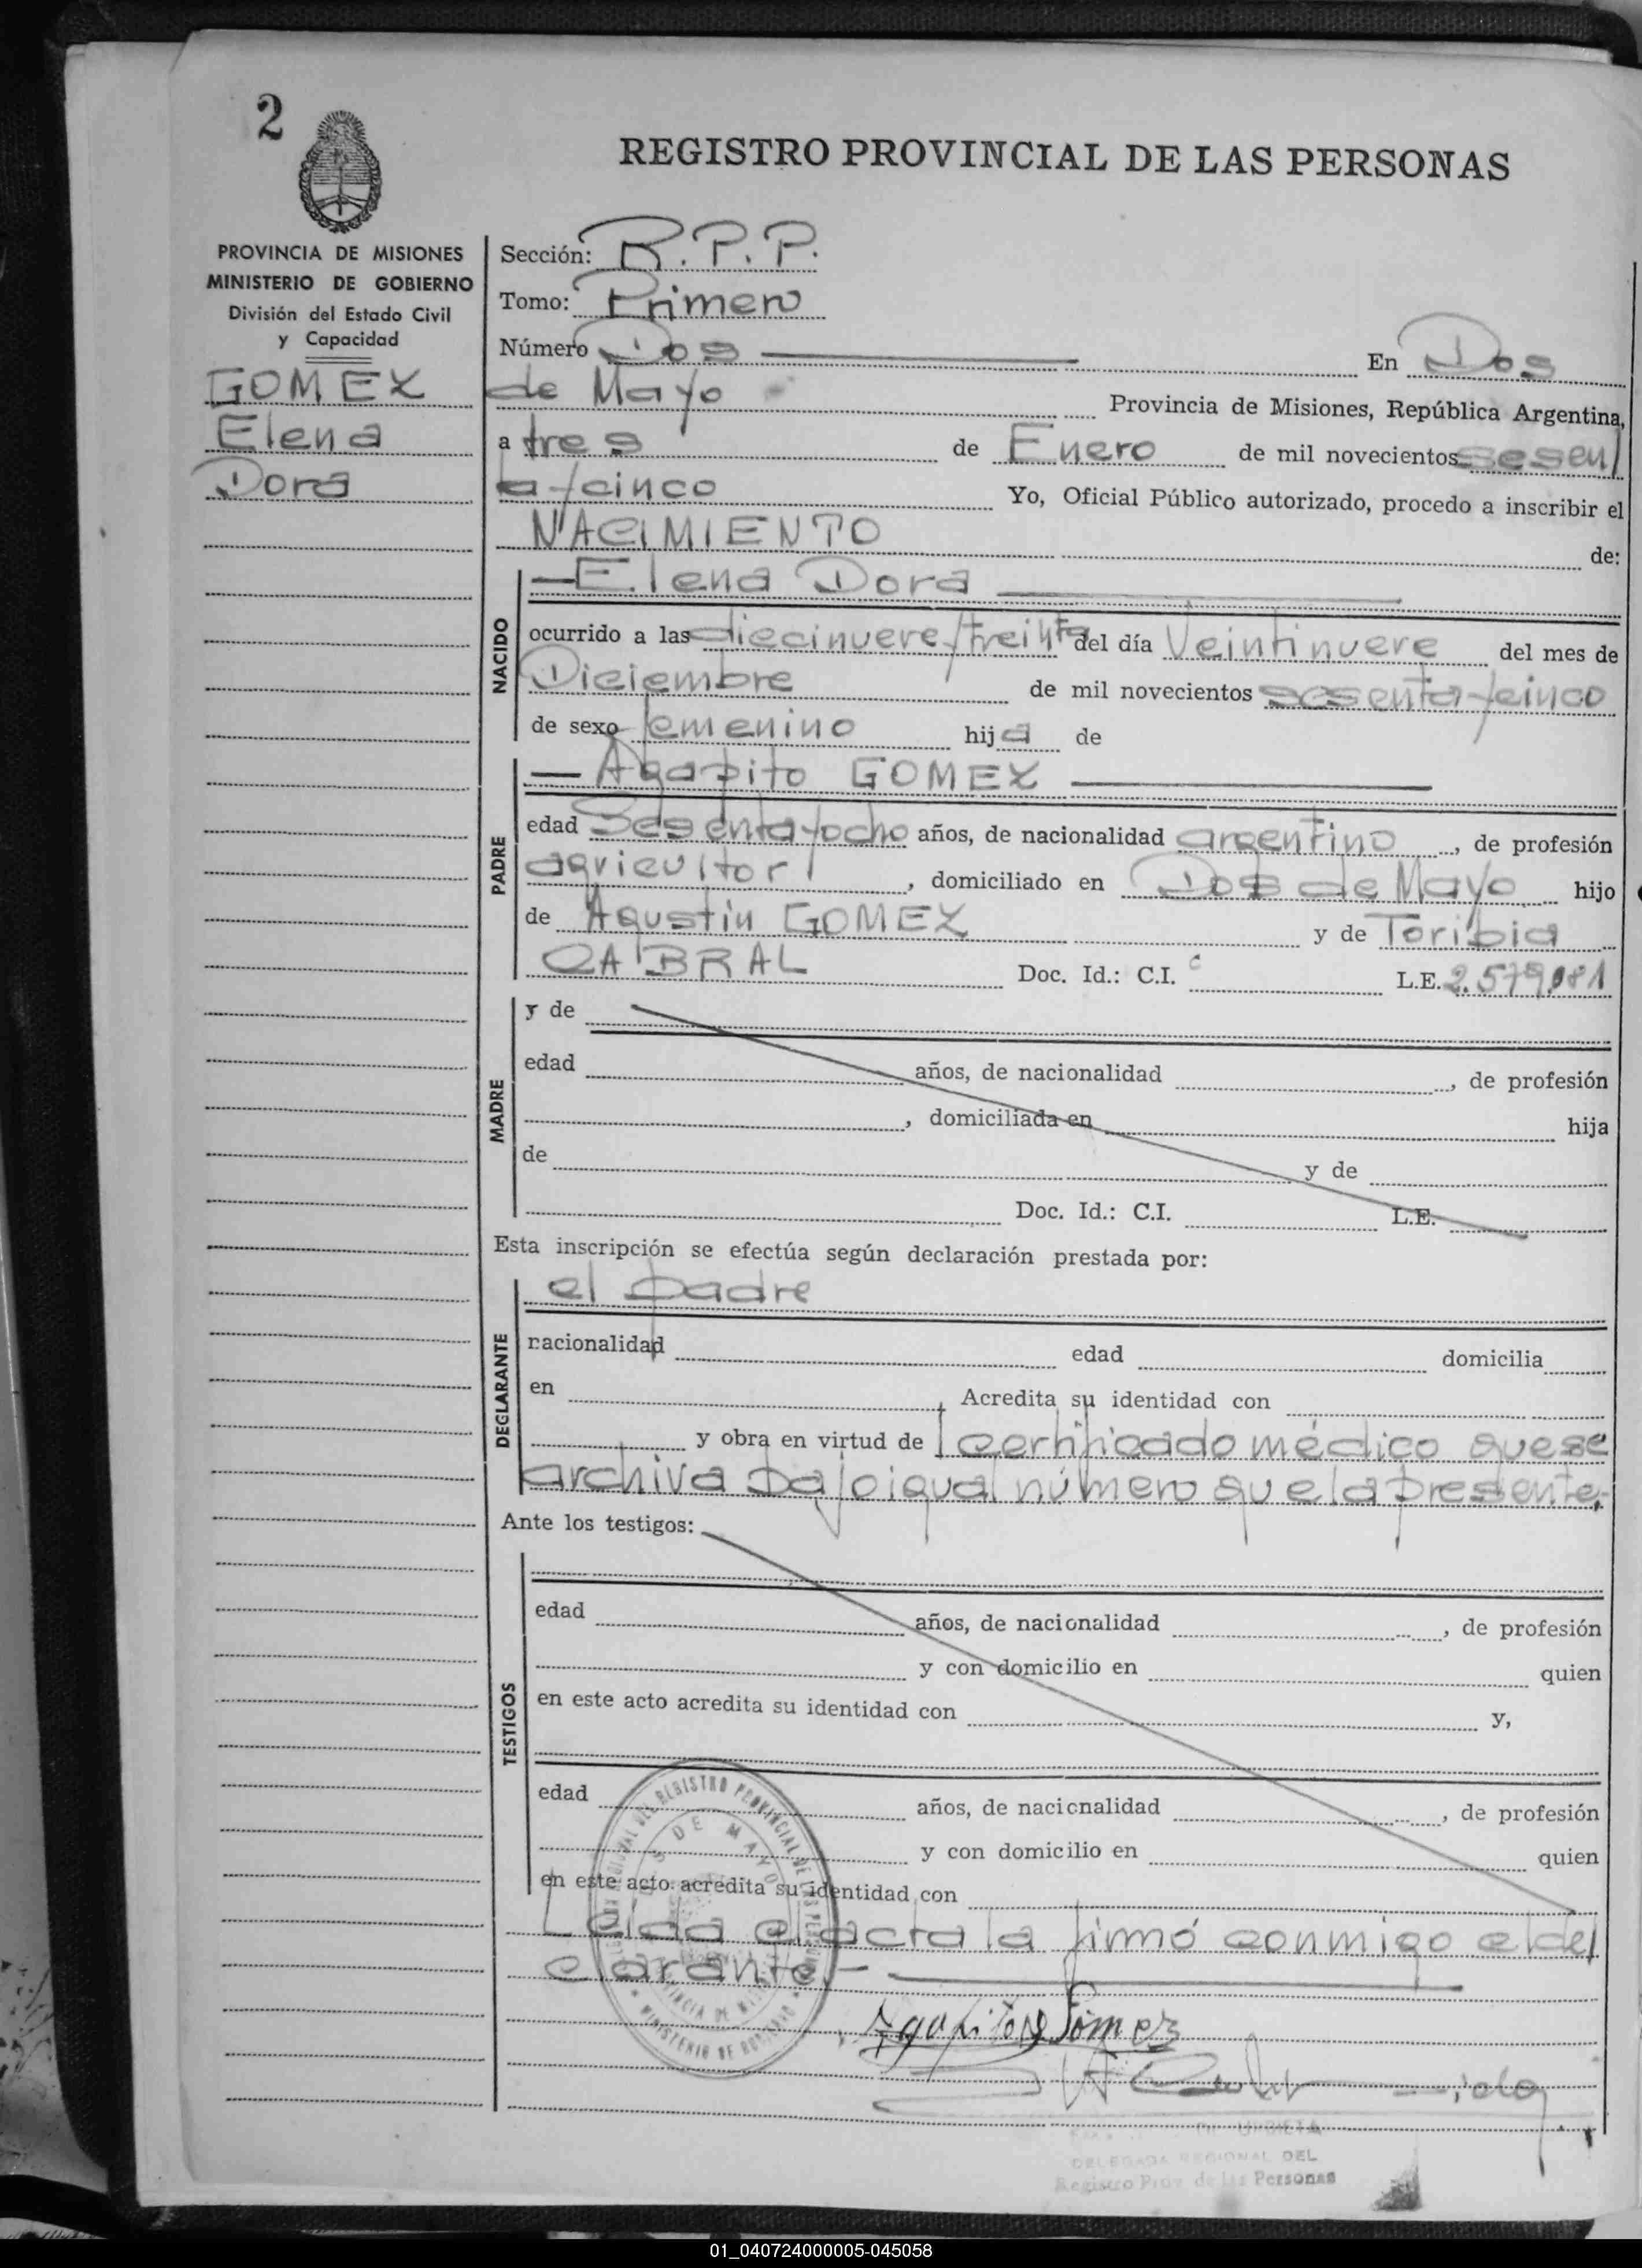 2
REGISTRO PROVINCIAL DE LAS PERSONAS
PROVINCIA DE MISIONES
MINISTERIO DE GOBIERNO
División del Estado Civil
y Capacidad
GOMEZ
Elena
Dora
Sección: R.P.P.
Tomo: Primero
Número Dos En Dos
de Mayo Provincia de Misiones, República Argentina,
a tres de Enero de mil novecientos sesen
ta y cinco Yo, Oficial Público autorizado, procedo a inscribir el
NACIMIENTO de:
NACIDO
— Elena Dora —
ocurrido a las diecinueve y treinta del día Veintinueve del mes de
Diciembre de mil novecientos sesenta y cinco
de sexo femenino hija de
PADRE
— Agapito GOMEZ —
edad Sesenta y ocho años, de nacionalidad argentino, de profesión
agricultor, domiciliado en Dos de Mayo hijo
de Agustín GOMEZ y de Toribia
CABRAL Doc. Id.: C.I. L.E. 2.579.081
MADRE
y de
edad años, de nacionalidad , de profesión
, domiciliada en hija
de y de
Doc. Id.: C.I. L.E.
Esta inscripción se efectúa según declaración prestada por:
DECLARANTE
el padre
nacionalidad edad domicilia
en Acredita su identidad con
y obra en virtud de certificado médico que se
archiva bajo igual número que la presente,-
Ante los testigos:
TESTIGOS
edad años, de nacionalidad , de profesión
y con domicilio en quien
en este acto acredita su identidad con y,
edad años, de nacionalidad , de profesión
y con domicilio en quien
en este acto acredita su identidad con
Leida el acta la firmó conmigo el de
clarante.-
REGISTRO PROVINCIAL DE LAS
DE MAYO
MINISTERIO DE GOBIERNO
Agapito Gomez
DELEGADA REGIONAL DEL
Registro Prov de las Personas
01_040724000005-045058